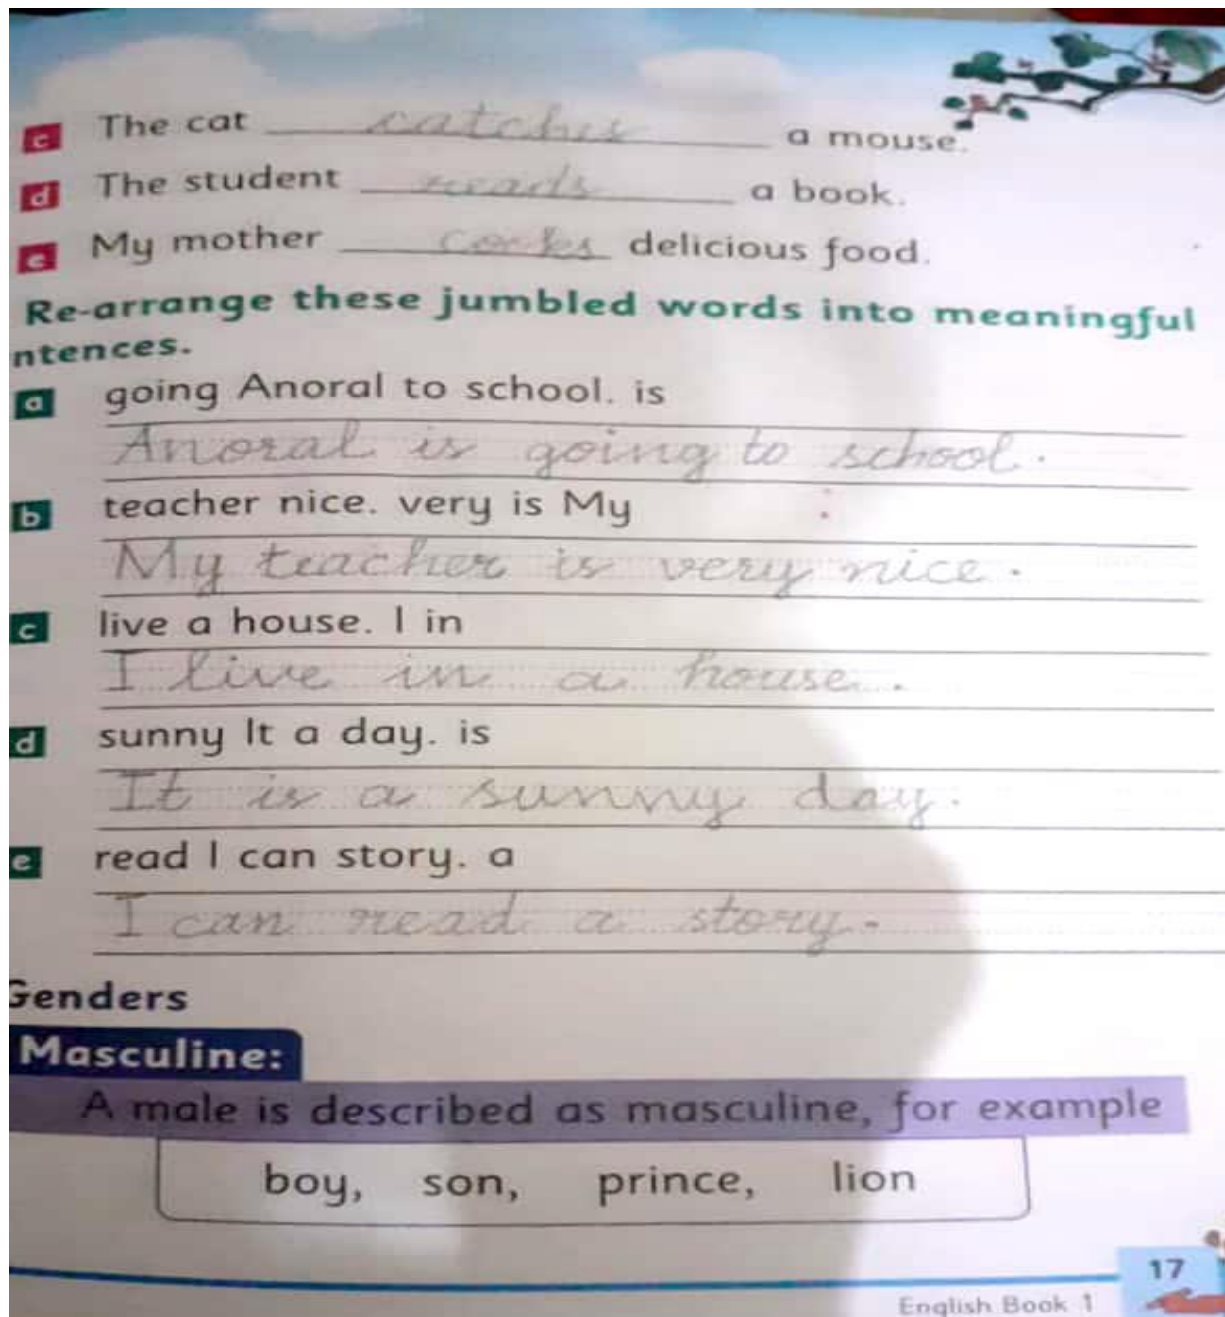 c The cat catches a mouse.
d The student reads a book.
e My mother cooks delicious food.
Re-arrange these jumbled words into meaningful
ntences.
a going Anoral to school. is
Anoral is going to school.
b teacher nice. very is My
My teacher is very nice.
c live a house. I in
I live in a house.
d sunny It a day. is
It is a sunny day.
e read I can story. a
I can read a story.
Genders
Masculine:
A male is described as masculine, for example
boy, son, prince, lion
17
English Book 1